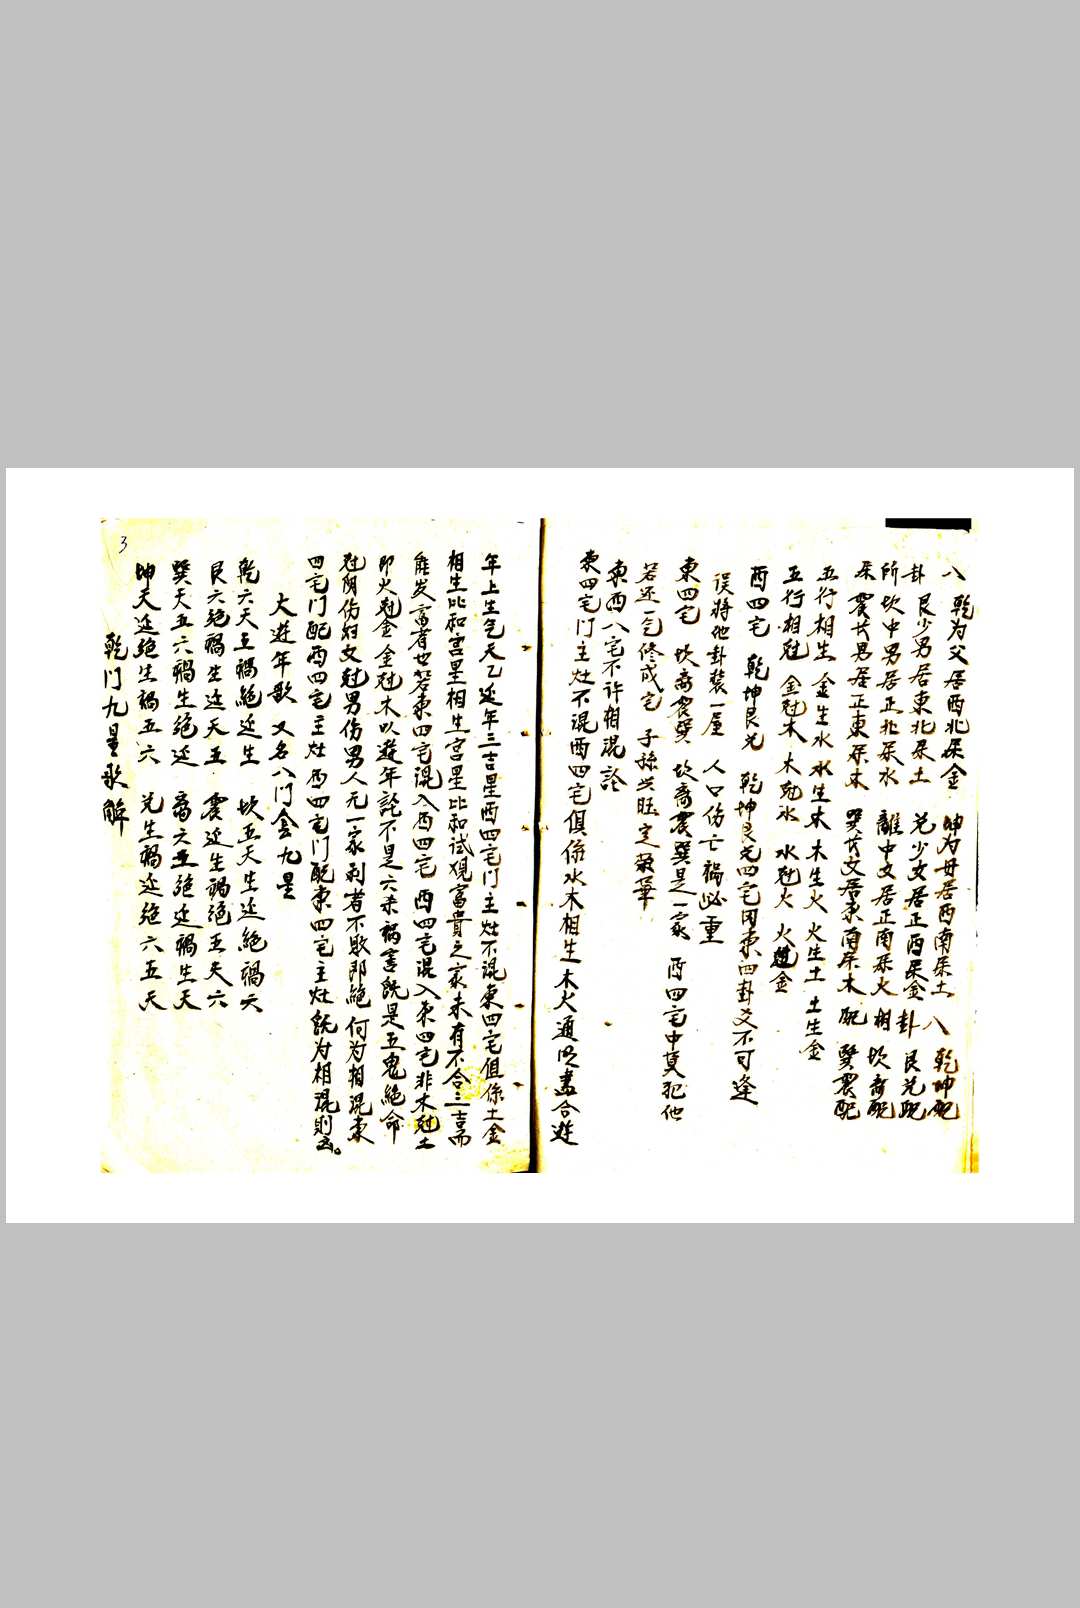 八 乾为父居西北属金 坤为母居西南属土 八 乾坤配
卦 艮少男居東北属土 兑少女居正西属金 卦 艮兑配
所 坎中男居正北属水 離中女居正南属火 相 坎离配
属 震长男居正東属木 巽长女居東南属木 配 巽震配
五行相生 金生水 水生木 木生火 火生土 土生金
五行相尅 金尅木 木尅水 水尅火 火尅金
西四宅 乾坤艮兑 乾坤艮兑四宅同東四卦爻不可逢
误將他卦装一屋 人口伤亡禍必重
東四宅 坎离震巽 坎离震巽是一家 西四宅中莫犯他
若还一气修成宅 子孫兴旺定荣華
東西八宅不许相混論
東四宅门主灶不混西四宅俱係水木相生木火通明盡合遊
年上生气天乙延年三吉星西四宅门主灶不混東四宅俱係土金
相生比和宫星相生宫星比和试观富貴之家未有不合三吉而
能发富者也若東四宅混入西四宅 西四宅混入東四宅非木尅土
即火尅金金尅木以遊年詑不是六杀禍害既是五鬼絶命
尅阴伤妇女尅男伤男人无一家利者不敗即絶何为相混東
四宅门配西四宅主灶西四宅门配東四宅主灶既为相混則凶。
大遊年歌 又名八门套九星
乾六天五禍絶延生 坎五天生延絶禍六
艮六绝禍生延天五 震延生禍绝五天六
巽天五六禍生绝延 离六五绝延禍生天
坤天延绝生禍五六 兑生禍延绝六五天
乾门九星歌解
3